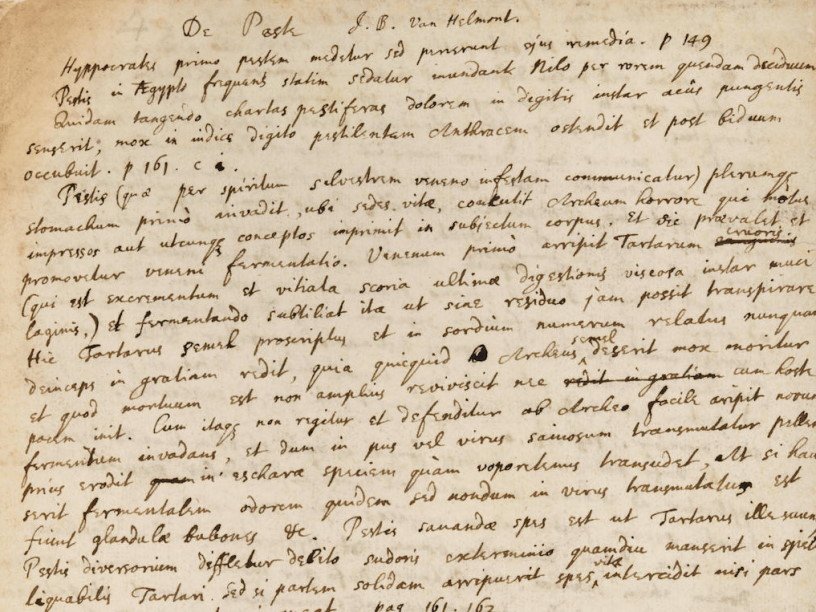 De Peste J. B. Van Helmont.
Hyppocrates primo pestem medetur sed perierunt ejus remedia. p 149
Pestis in Ægypto frequens statim sedatur inundante Nilo per rorem quendam deciduum
Quidam tangendo chartas pestiferas dolorem in digitis instar acûs pungentis
senserit, mox in indice digito pestilentem Anthracem ostendit et post biduum
occubuit. p 161. c
Pestis (quæ per spiritum silvestrem veneno infestam communicatur) plerumqȝ
stomachum primò invadit, ubi sedes vitæ, concutit Archeum horrore qui motus
impressos aut utcunqȝ conceptos imprimit in subjectum corpus. Et sic prævalet et
promovetur veneni fermentatio. Venenum primò arripit Tartarum cruoris sanguinis
(qui est excrementum et vitiata scoria ultimæ digestionis viscosa instar muci
laginis,) et fermentando subtiliat ita ut sine residuo jam possit transpirare
Hic Tartarus semel proscriptus et in sordium numerum relatus nunquam
deinceps in gratiam redit, quia quicquid Archeus semel deserit mox moritur
et quod mortuum est non amplius reviviscit nec redit in gratiam cum hoste
pacem init. Cum itaqȝ non regitur et defenditur ab Archeo facile aripit novum
fermentum invadens, et dum in pus vel virus saniosum transmutatur pellem
prius erodit quam in escharæ speciem quàm voporetenus transudet, At si hau
serit fermentalem odorem quidem sed nondum in virus transmutatum est
fiunt glandulæ bubones &c. Pestis sanandæ spes est ut Tartarus ille suum
Pestis diversorium deffletur debito sudoris exterminio quamdiu manserit in spir
liquabilis Tartari. Sed si partem solidam arripuerit spes vitæ intercidit nisi pars
pag 161. 162